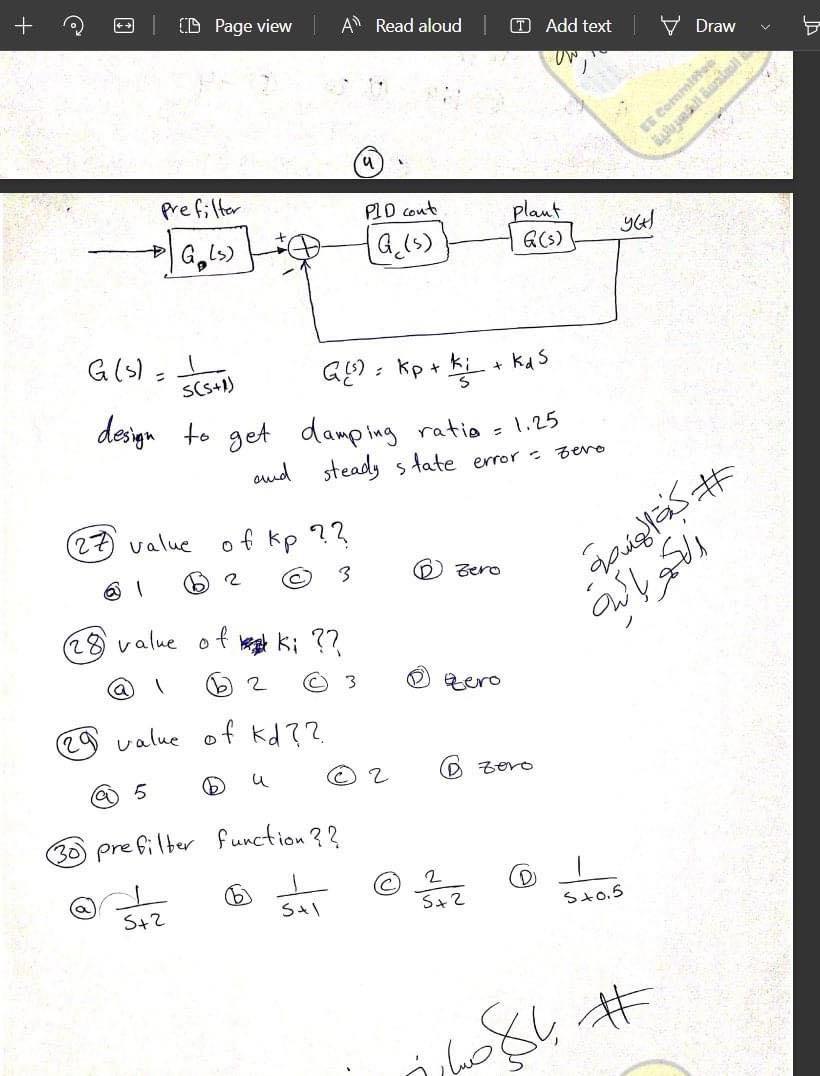 Page view
Read aloud
Add text
Draw
EE Committee
4
Prefilter
PID cont
plant
y(t)
+
Gp(s)
Gc(s)
G(s)
-
G(s) = 1/s(s+1)
Gc(s) = kp + ki/s + kd s
design to get damping ratio = 1.25
and steady state error = zero
27 value of kp ??
a 1 b 2 c 3 D zero
28 value of ki ??
a 1 b 2 c 3 D zero
29 value of kd ??
a 5 b 4 c 2 D zero
30 prefilter function ??
a 1/s+2 b 1/s+1 c 2/s+2 D 1/s+0.5